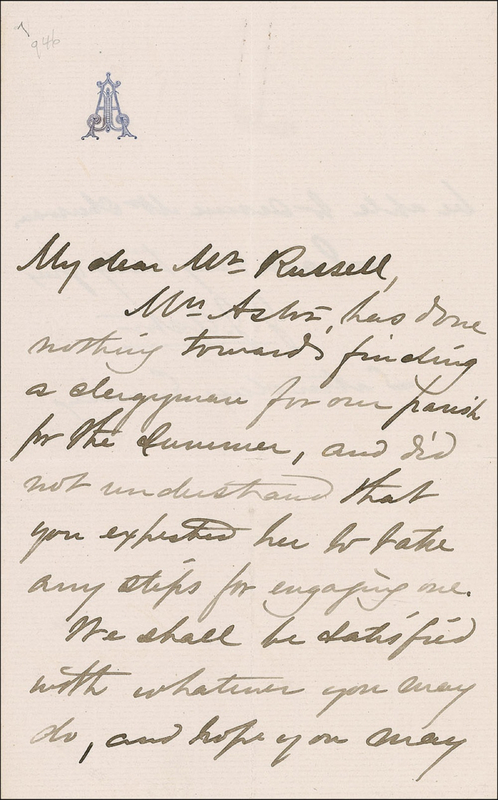 946
A
My dear Mr Russell,
Mrs Astor, has done
nothing towards finding
a clergyman for our parish
for the Summer, and did
not understand that
you expected her to take
any steps for engaging one.
We shall be satisfied
with whatever you may
do, and hope you may